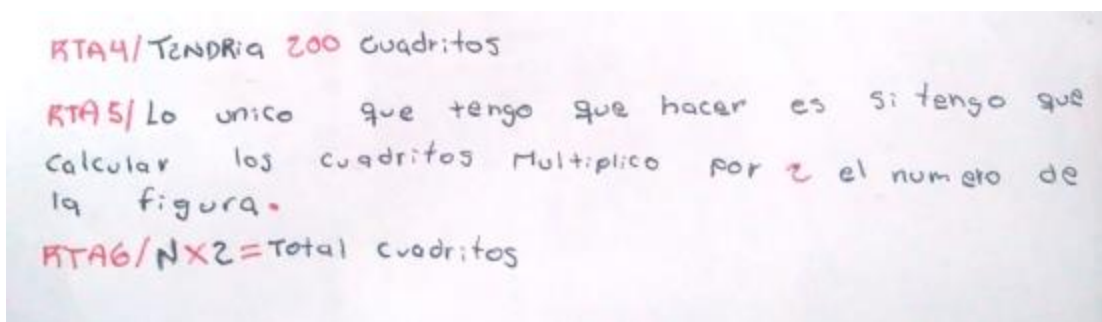 RTA4/ TENDRia 200 cuadritos
RTA 5/ Lo unico que tengo que hacer es si tengo que
Calcular los cuadritos Multiplico por 2 el numero de
la figura.
RTA6/ N X 2 = Total cuadritos